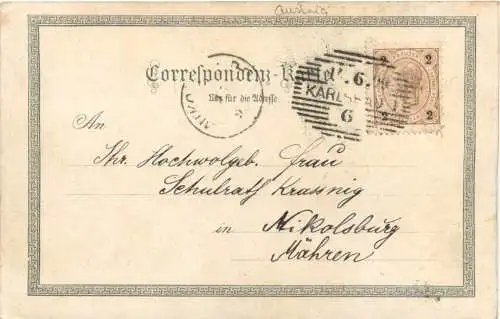 Correspondenz-Karte
Nur für die Adresse.
2 2
6.
KARLSBAD
6
2 2
An
Ihr. Hochwolgeb. Frau
Schulrath Krassnig
in Nikolsburg
Mähren